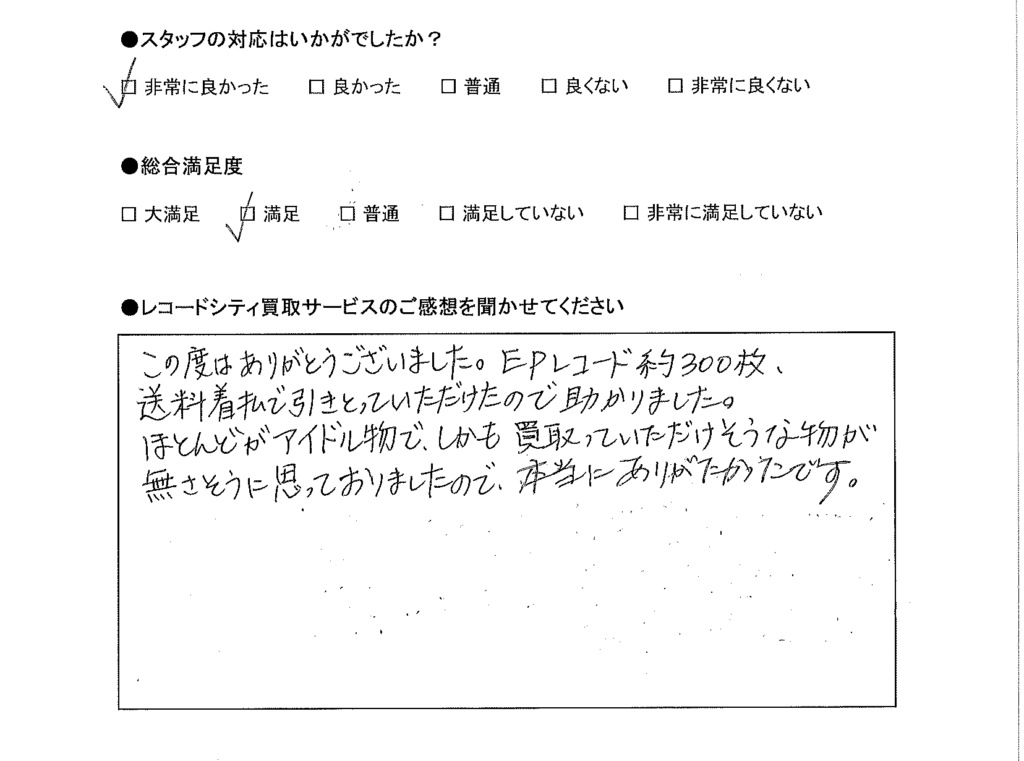 ●スタッフの対応はいかがでしたか？
□ 非常に良かった □ 良かった □ 普通 □ 良くない □ 非常に良くない
●総合満足度
□ 大満足 □ 満足 □ 普通 □ 満足していない □ 非常に満足していない
●レコードシティ買取サービスのご感想を聞かせてください
この度はありがとうございました。EPレコード約300枚、
送料着払で引きとっていただけたので助かりました。
ほとんどがアイドル物で、しかも買取っていただけそうな物が
無さそうに思っておりましたので、本当にありがたかったです。